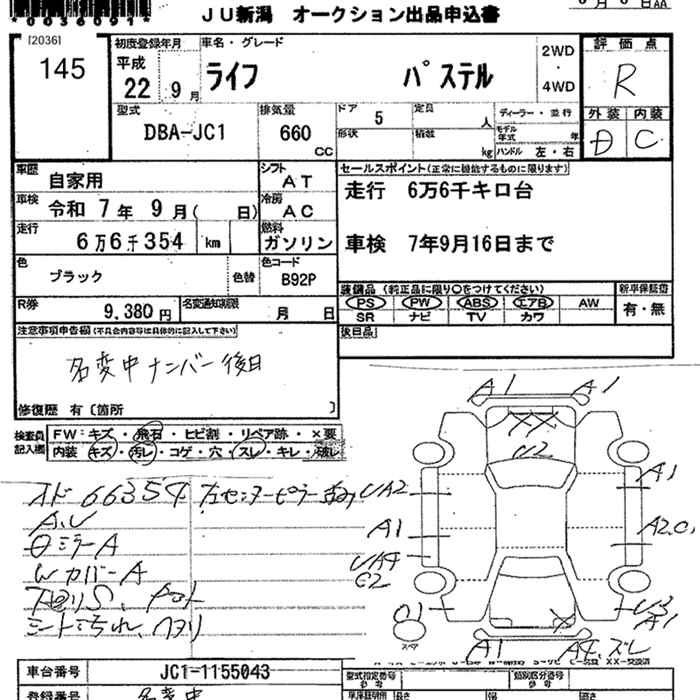 *0036091*
JU新潟 オークション出品申込書
[2036]
145
初度登録年月
平成
22 9月
車名・グレード
ライフ パステル
2WD
・
4WD
評価点
R
型式
DBA-JC1
排気量
660
CC
ドア 5
形状
定員 人
積載 kg
ディーラー・並行
モデル年式 年
ハンドル 左・右
外装 内装
D C
車歴
自家用
シフト
AT
セールスポイント(正常に機能するものに限ります)
走行 6万6千キロ台
車検 7年9月16日まで
車検
令和 7年 9月( 日)
冷房
AC
走行
6万6千354 km
燃料
ガソリン
色
ブラック
色替
色コード
B92P
装備品 (純正品に限り○をつけてください)
PS PW ABS エアB AW
SR ナビ TV カワ
新車保証書
有・無
R券
9,380円
名変通知期限
月 日
後日品
注意事項申告欄(不具合内容等は具体的に記入して下さい)
名変中ナンバー後日
修復歴 有〔箇所 〕
検査員
記入欄
FW:キズ・飛石・ヒビ割・リペア跡・×要
内装 キズ・汚レ・コゲ・穴・スレ・キレ・破レ
オド 66354
A.U
ミラーA
WカバーA
A1 A1
U2
UA2
A1
A1
A1
スペア
車台番号
JC1-1155043
登録番号
名変中
型式指定番号
類別区分番号